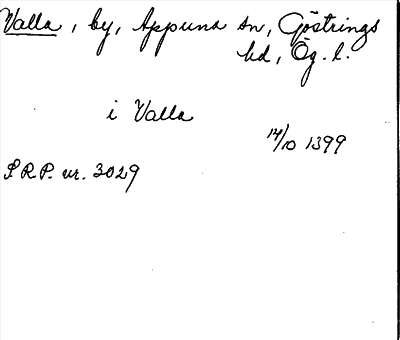 Valla, by, Appuna sn, Göstrings
hd, Ög. l.
i Valla
14/10 1399
S.R.P. nr. 3029